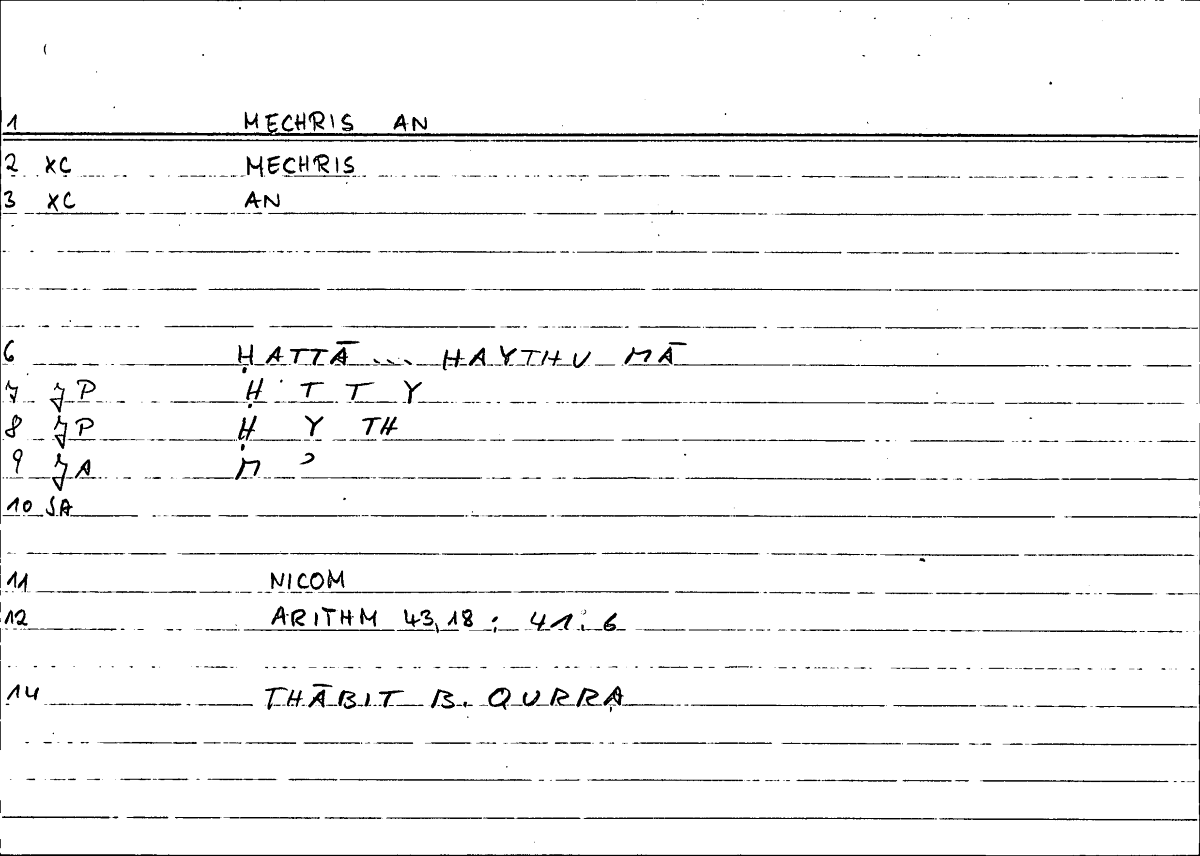 1 MECHRIS AN
2 XC MECHRIS
3 XC AN
6 ḤATTĀ ... HAYTHU MĀ
7 JP Ḥ T T Y
8 JP Ḥ Y TH
9 JA M ʾ
10 SA
11 NICOM
12 ARITHM 43,18 : 41.6
14 THĀBIT B. QURRA